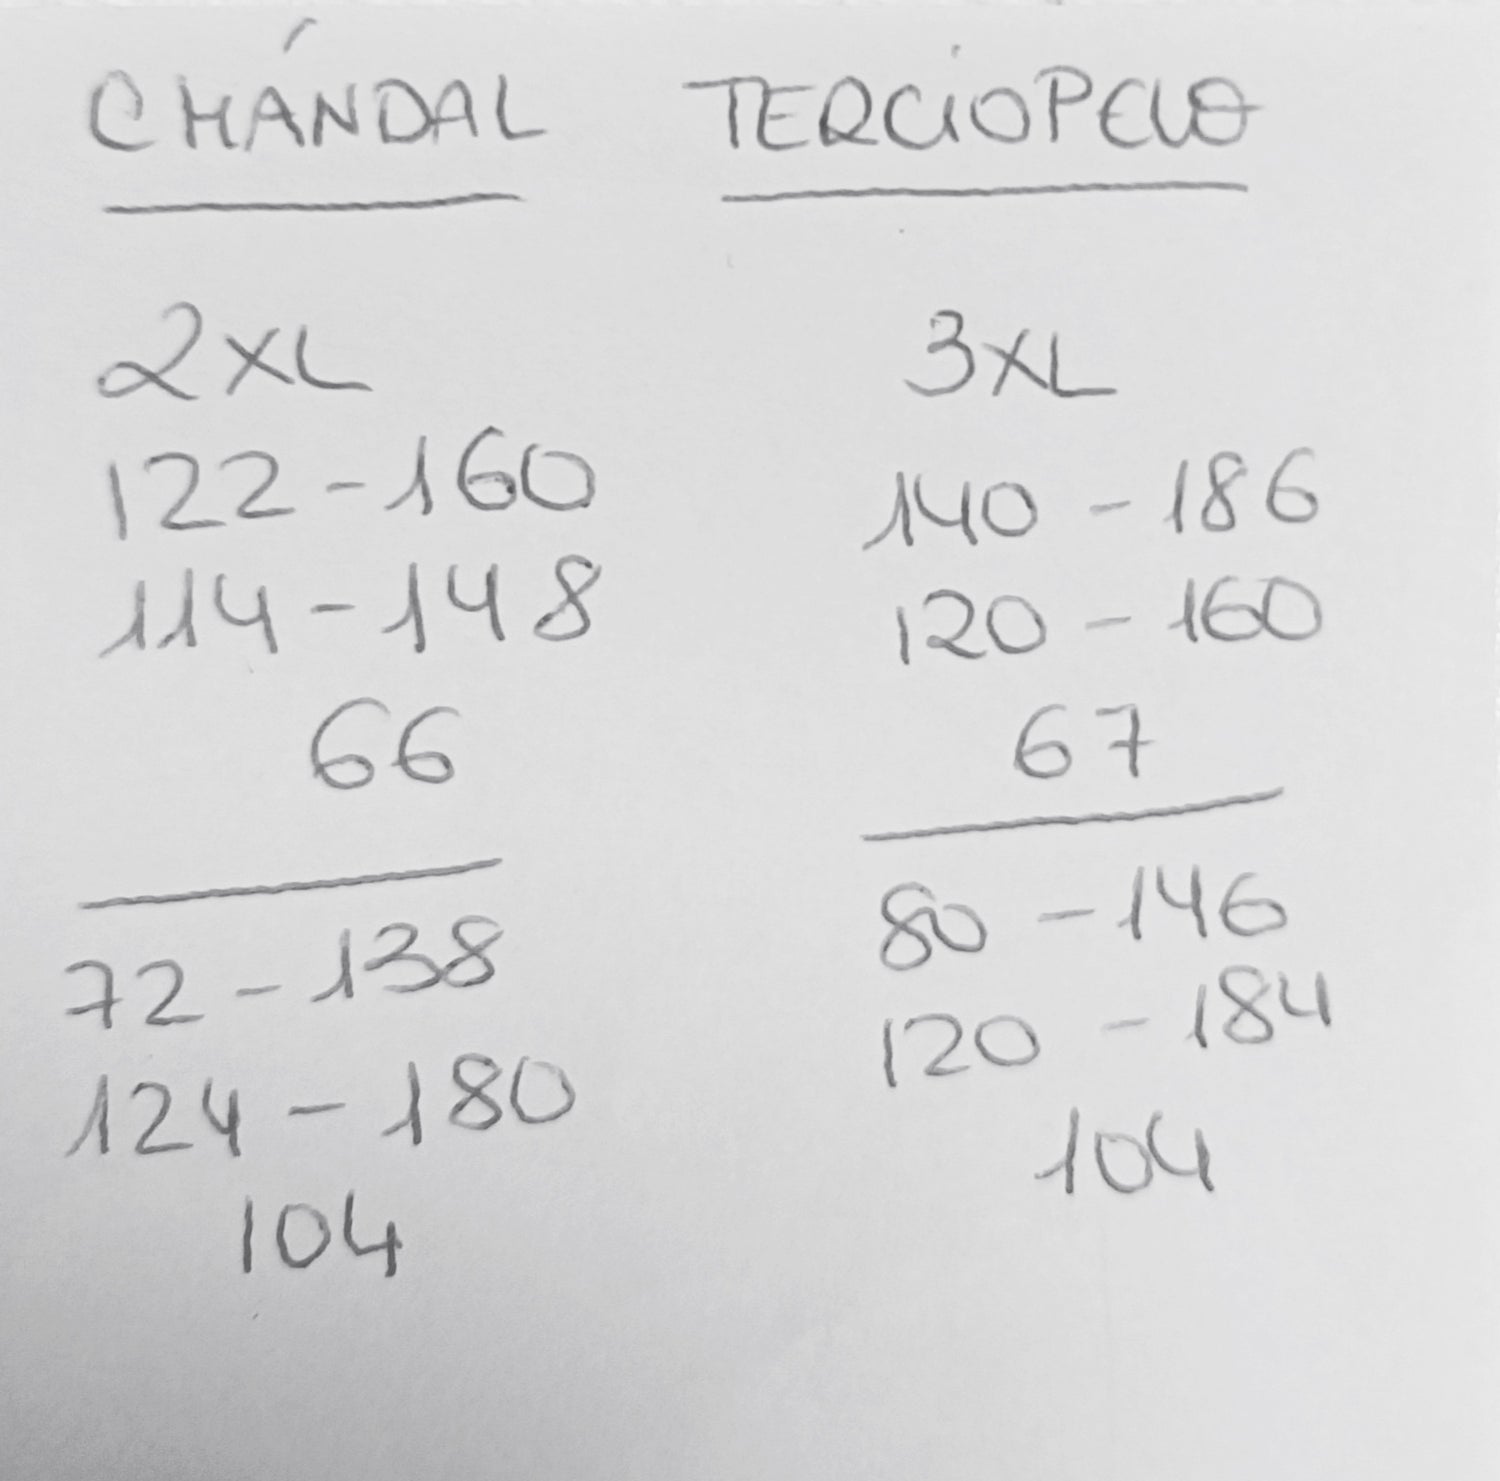 CHÁNDAL TERCIOPELO
2XL
122-160
114-148
66
72-138
124-180
104
3XL
140-186
120-160
67
80-146
120-184
104